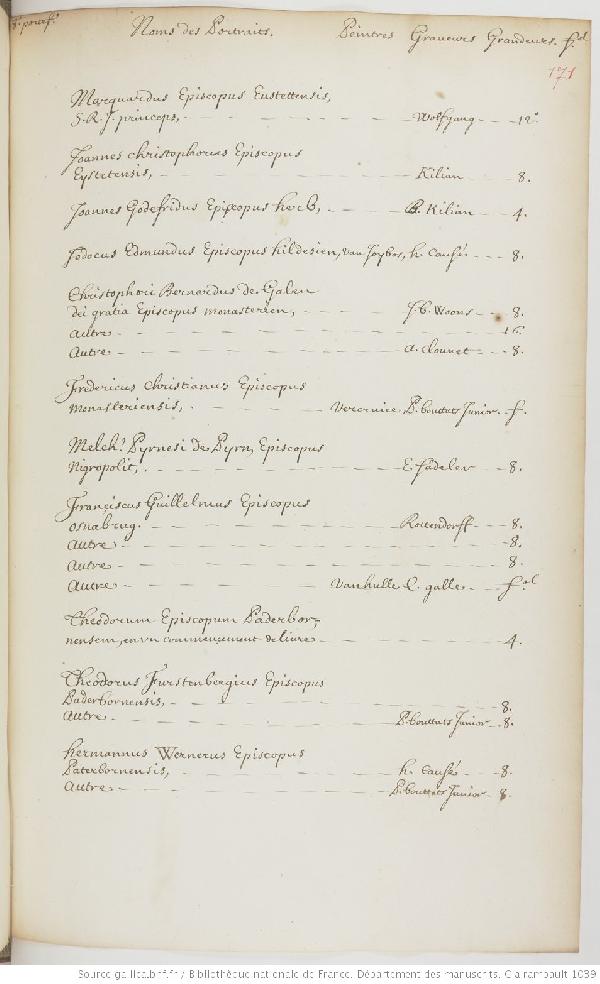 Noms des Portraits. Peintres Graveurs Grandeurs. f.al
171
Marquardus Episcopus Eustettensis,
S. R. J. princeps, Wolfgang 12.
Joannes christophorus Episcopus
Eystetensis, Kilian 8.
Joannes Godefridus Episcopus herb, B. Kilian 4.
Jodocus Edmundus Episcopus hildesien, h. Causé 8.
Christophori Bernardus de Galen
dei gratia Episcopus monasterien, J. C. Woons 8.
autre 16.
Autre A. Clouuet 8.
Fredericus Christianus Episcopus
monasteriensis, P. bouttats Junior f.
Melch.r Pyrnesi de Pyrn, Episcopus
Nigropolit, 8.
Franciscus Guillelmus Episcopus
osnabrug. Rottendorff 8.
autre 8.
autre 8.
Autre Vanhulle C. galle f.al
Theodorum Episcopum Paderbor-
nensem, en un commencement de livre 4.
Theodorus Furstenbergius Episcopus
Paderbornensis, 8.
autre P. bouttats Junior 8.
hermannus Wernerus Episcopus
Paterbornensis, h. Causé 8.
autre P. bouttats Junior 8.
Source gallica.bnf.fr / Bibliothèque nationale de France. Département des manuscrits. Clairambault 1039